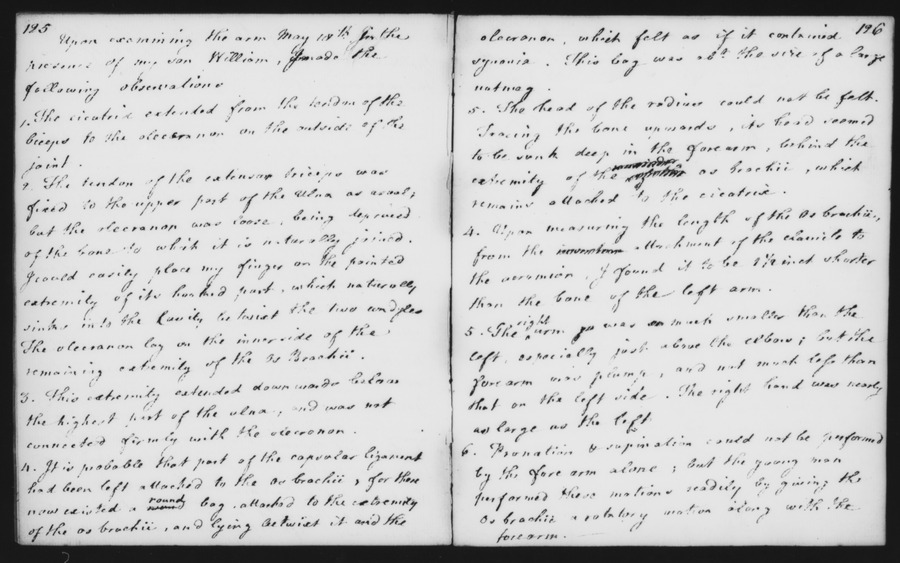 125
Upon examining the arm May 18th In the
presence of my son William, I made the
following observations
1. The cicatrix extended from the tendon of the
biceps to the olecranon on the outside of the
joint.
2. The tendon of the extensor triceps was
fixed to the upper part of the ulna as usual;
but the olecranon was loose, being deprived
of the bone to which it is naturally joined.
I could easily place my finger on the pointed
extremity of its hooked part, which naturally
sinks into the Cavity betwixt the two condyles
The olecranon lay on the inner side of the
remaining extremity of the Os Brachii.
3. This extremity extended downwards below
the highest part of the ulna, and was not
connected firmly with the olecranon.
4. It is probable that part of the capsular ligament
had been left attached to the os brachii; for there
now existed a round bag attached to the extremity
of the os brachii, and lying betwixt it and the
126
olecranon, which felt as if it contained
synovia. This bag was abt the size of a large
nutmeg.
5. The head of the radius could not be felt.
Tracing the bone upwards, its head seemed
to be sunk deep in the forearm, behind the
extremity of the remainder os brachii, which
remains attached to the cicatrix.
4. Upon measuring the length of the Os brachii,
from the attachment of the clavicle to
the acromion, I found it to be 1½ inch shorter
than the bone of the left arm.
5. The right arm was much smaller than the
left, especially just above the elbow; but the
forearm was plump, and not much less than
that on the left side. The right hand was nearly
as large as the left.
6. Pronation & supination could not be performed
by the fore arm alone; but the young man
performed these motions readily by giving the
os brachii a rotatory motion along with the
forearm.